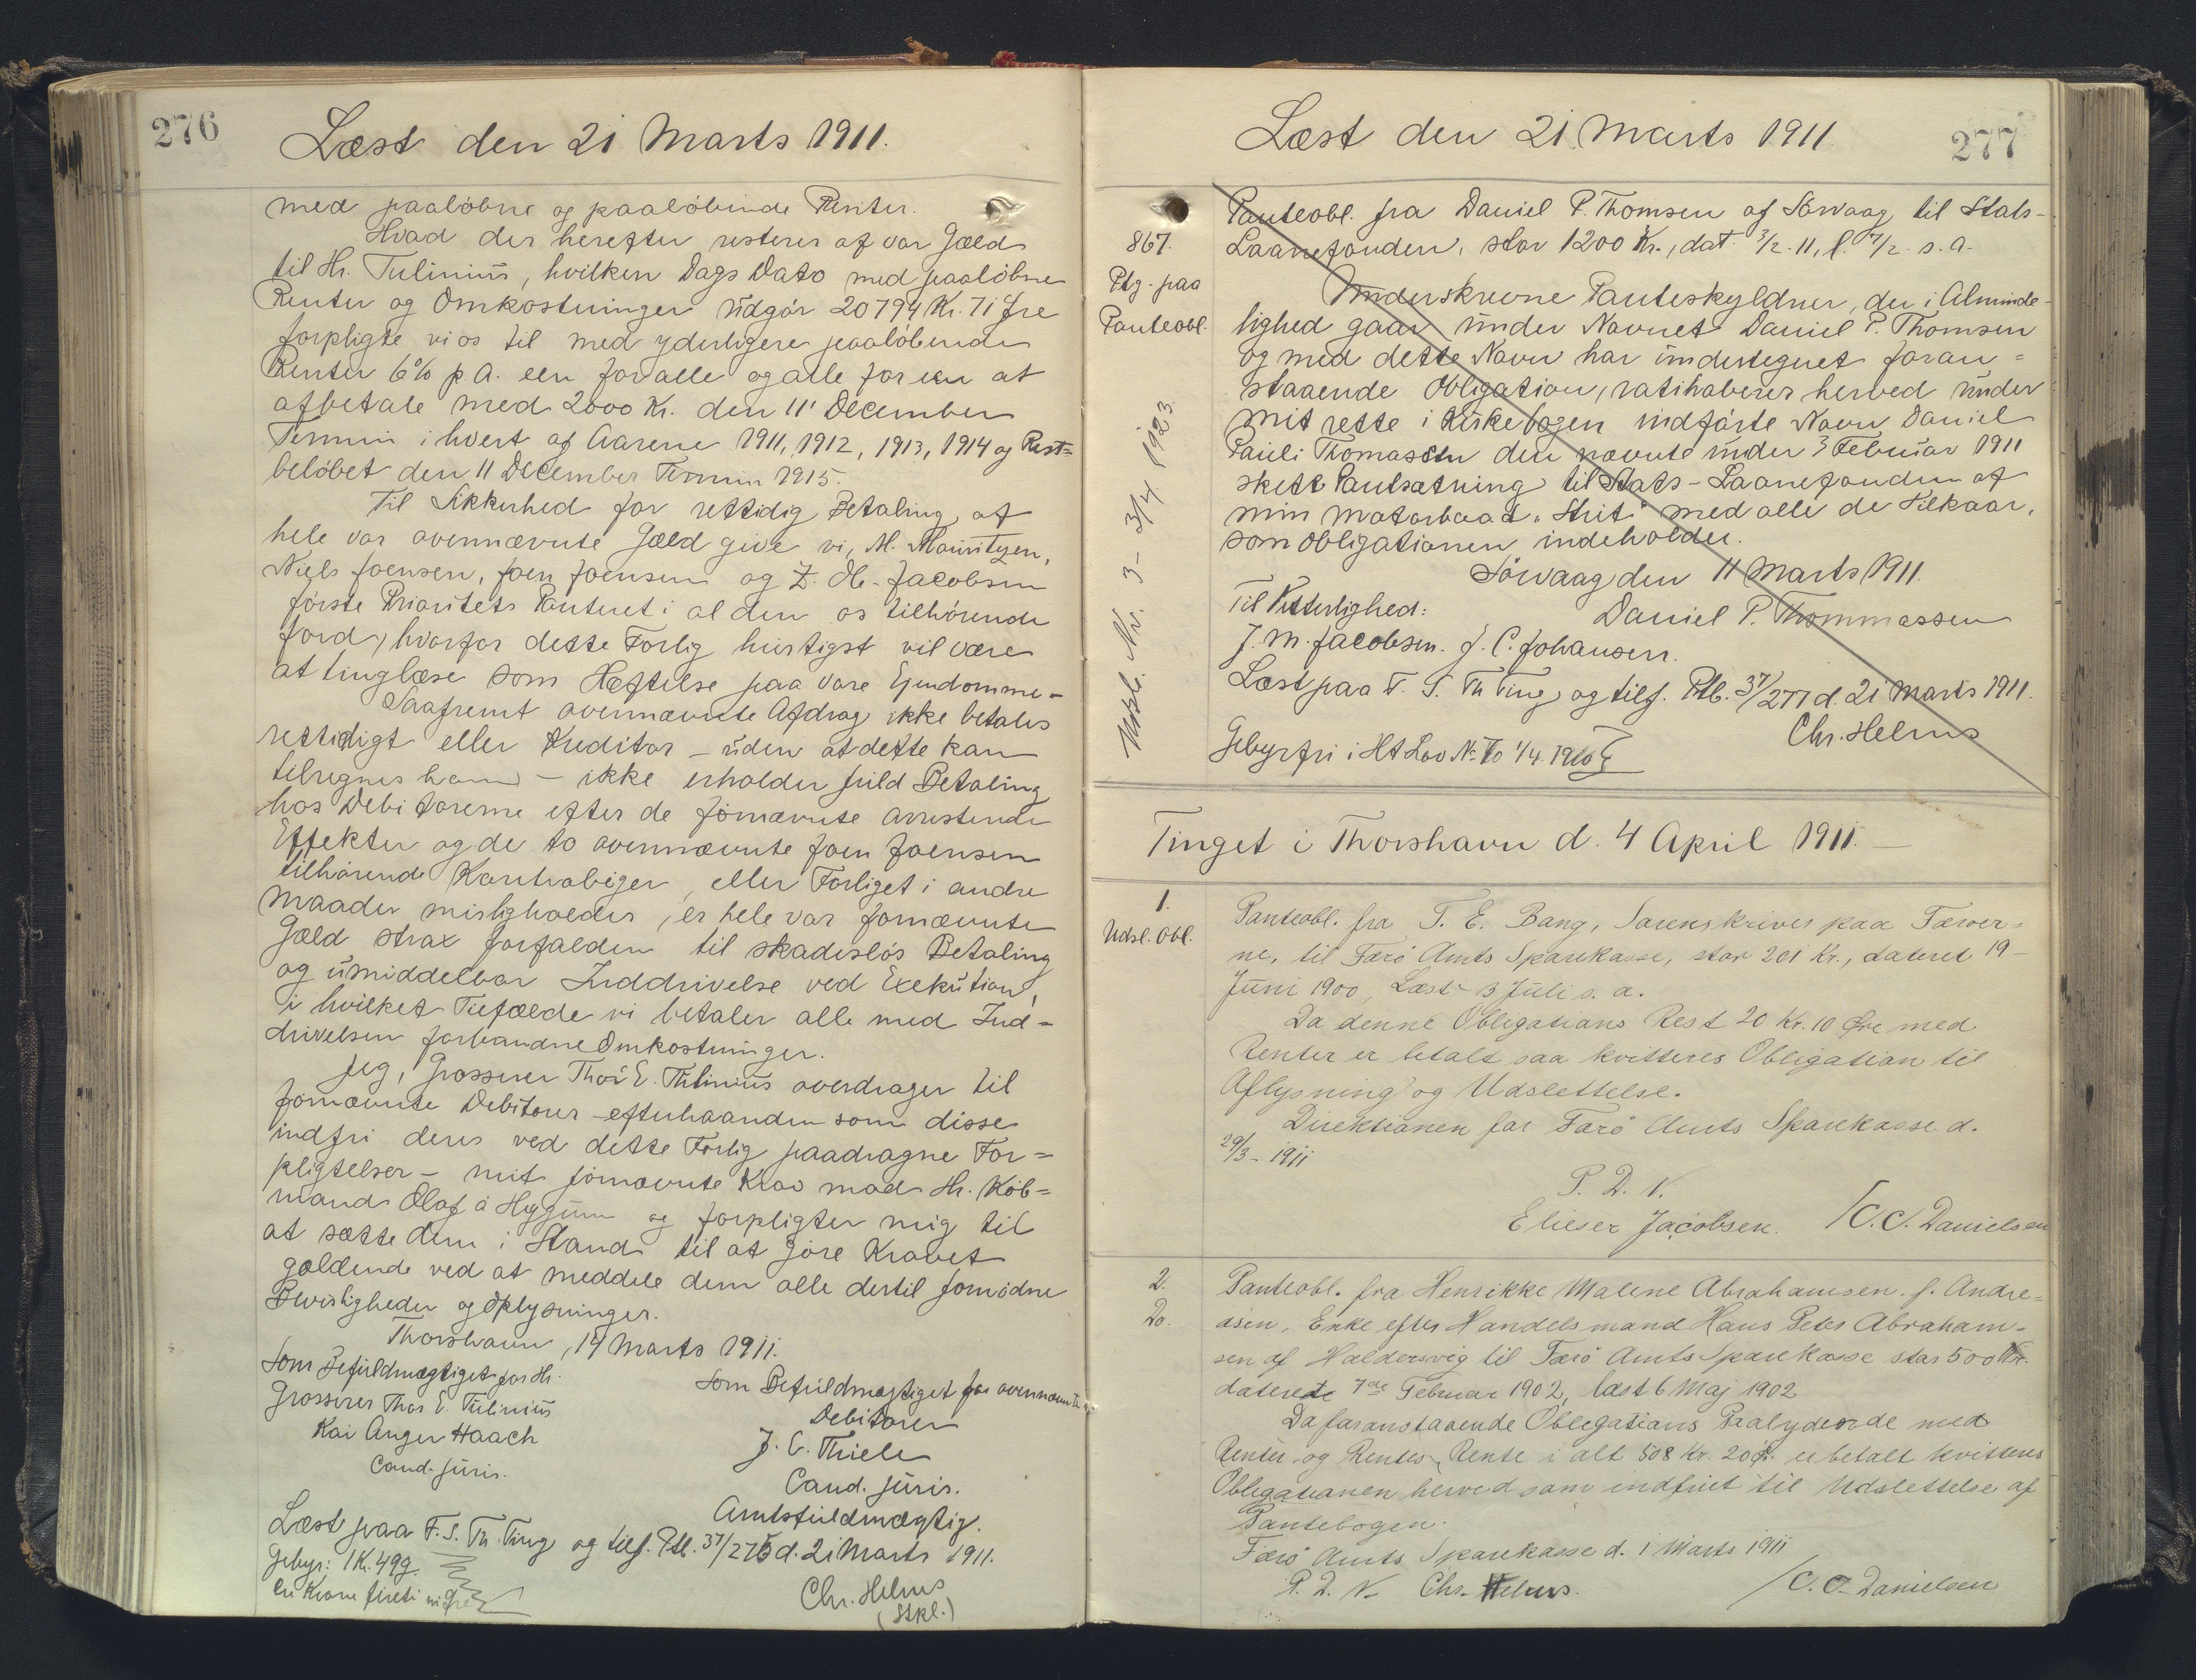 276
Læst den 21 Marts 1911.
med paaløbne og paaløbende Renter.
Hvad der herefter resterer af vor Gæld
til Hr. Tulinius, hvilken Dags Dato med paaløbne
Renter og Omkostninger udgør 20794 Kr. 71 Øre
forpligte vi os til med yderligere paaløbende
Renter 6% p.a. een for alle og alle for een at
afbetale med 2000 Kr. den 11' December
Termin i hvert af Aarene 1911, 1912, 1913, 1914 og Rest=
beløbet den 11 December Termin 1915.
Til Sikkerhed for rettidig Betaling af
hele vor ovennævnte Gæld give vi, M. Mauritzen,
Niels Joensen, Joen Joensen og Z. H. Jacobsen
første Prioritets Panteret i al den os tilhørende
Jord, hvorfor dette Forlig hurtigst vil være
at tinglæse som Hæftelse paa vore Ejendomme -
Saafremt ovennævnte Afdrag ikke betales
rettidigt eller Kreditor - uden at dette kan
tilregnes ham - ikke erholder fuld Betaling
hos Debitorerne efter de fornævnte arresterede
Effekter og de to ovennævnte Joen Joensen
tilhørende Kontrabøger, eller Forliget i andre
Maader misligholdes, er hele vor fornævnte
Gæld strax forfalden til skadesløs Betaling
og umiddelbar Inddrivelse ved Exekution,
i hvilket Tilfælde vi betaler alle med Ind=
drivelsen forbundne Omkostninger.
Jeg, Grosserer Thor E. Tulinius overdrager til
fornævnte Debitorer - efterhaanden som disse
indfri deres ved dette Forlig paadragne For=
pligtelser - mit fornævnte Krav mod Hr. Køb=
mand Olaf á Hyggum og forpligter mig til
at sætte dem i Stand til at gøre Kravet
gældende ved at meddele dem alle dertil fornødne
Bevisligheder og Oplysninger.
Thorshavn, 14 Marts 1911.
Som Befuldmægtiget for Hr.
Grosserer Thor E. Tulinius
Kai Anger Haach
Cand. juris.
Som Befuldmægtiget for ovennævnte
Debitorer
J. C. Thiele
Cand. juris.
Amtsfuldmægtig.
Læst paa F. S. Th. Ting og tilf. Ptb. 37/276 d. 21 Marts 1911.
Gebyr: 1 Kr. 49 Ø.
en Krone firti ni Øre
Chr. Helms
(Stkl.)
277
Læst den 21. Marts 1911.
867.
Ptg. paa
Panteobl.
Udsl. Nr. 3 - 3/4 1923.
Panteobl. fra Daniel P. Thomsen af Sørvaag til Stats-
Laanefonden, stor 1200 Kr., dat. 3/2. 11, l. 7/2. s.a.
Underskrevne Panteskyldner, der i Alminde-
lighed gaar under Navnet Daniel P. Thomsen
og med dette Navn har undertegnet foran=
staaende Obligation, ratihaberer herved under
mit rette i Kirkebogen indførte Navn Daniel
Pauli Thomassen den nævnte under 3 Februar 1911
skete Pantsætning til Stats-Laanefonden af
min Motorbaad "Strit" med alle de Vilkaar,
som Obligationen indeholder.
Sørvaag den 11 Marts 1911.
Til Vitterlighed:
Daniel P. Thommassen
J. M. Jacobsen. J. C. Johansen.
Læst paa F. S. Th Ting og tilf. Ptb. 37/277 d. 21 Marts 1911.
Chr. Helms
Gebyrfri i Ht Lov No 70 1/4. 1905
Tinget i Thorshavn d. 4 April 1911. -
1.
Udsl. Obl.
Panteobl. fra T. E. Bang, Sorenskriver paa Færøer=
ne, til Færø Amts Sparekasse, stor 201 Kr., dateret 19 -
Juni 1900, Læst 3 Juli s. a.
Da denne Obligations Rest 20 Kr. 10 Øre med
Renter er betalt saa kvitteres Obligation til
Aflysning og Udslettelse.
Direktionen for Færø Amts Sparekasse d.
29/3 - 1911
P. D. V.
Elieser Jacobsen. / C. C. Danielsen
2.
Do.
Panteobl. fra Henrikke Malene Abrahamsen f. Andre=
asen, Enke efter Handelsmand Hans Peter Abraham=
sen af Haldersvig til Færø Amts Sparekasse stor 500 Kr.
daterete 7de Februar 1902, læst 6 Maj 1902
Da foranstaaende Obligations Paalydende med
Renter og Rentes Rente i alt 508 Kr. 20 Ø. er betalt kvitteres
Obligationen herved som indfriet til Udslettelse af
Pantebogen.
Færø Amts Sparekasse d. 1 Marts 1911
P. D. V. Chr. Helms. / C. C. Danielsen